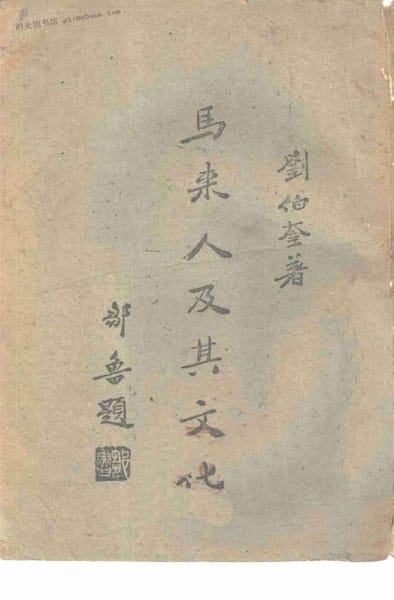 时光图书馆 atimebook.com
劉伯奎著
馬来人及其文化
鄒魯題